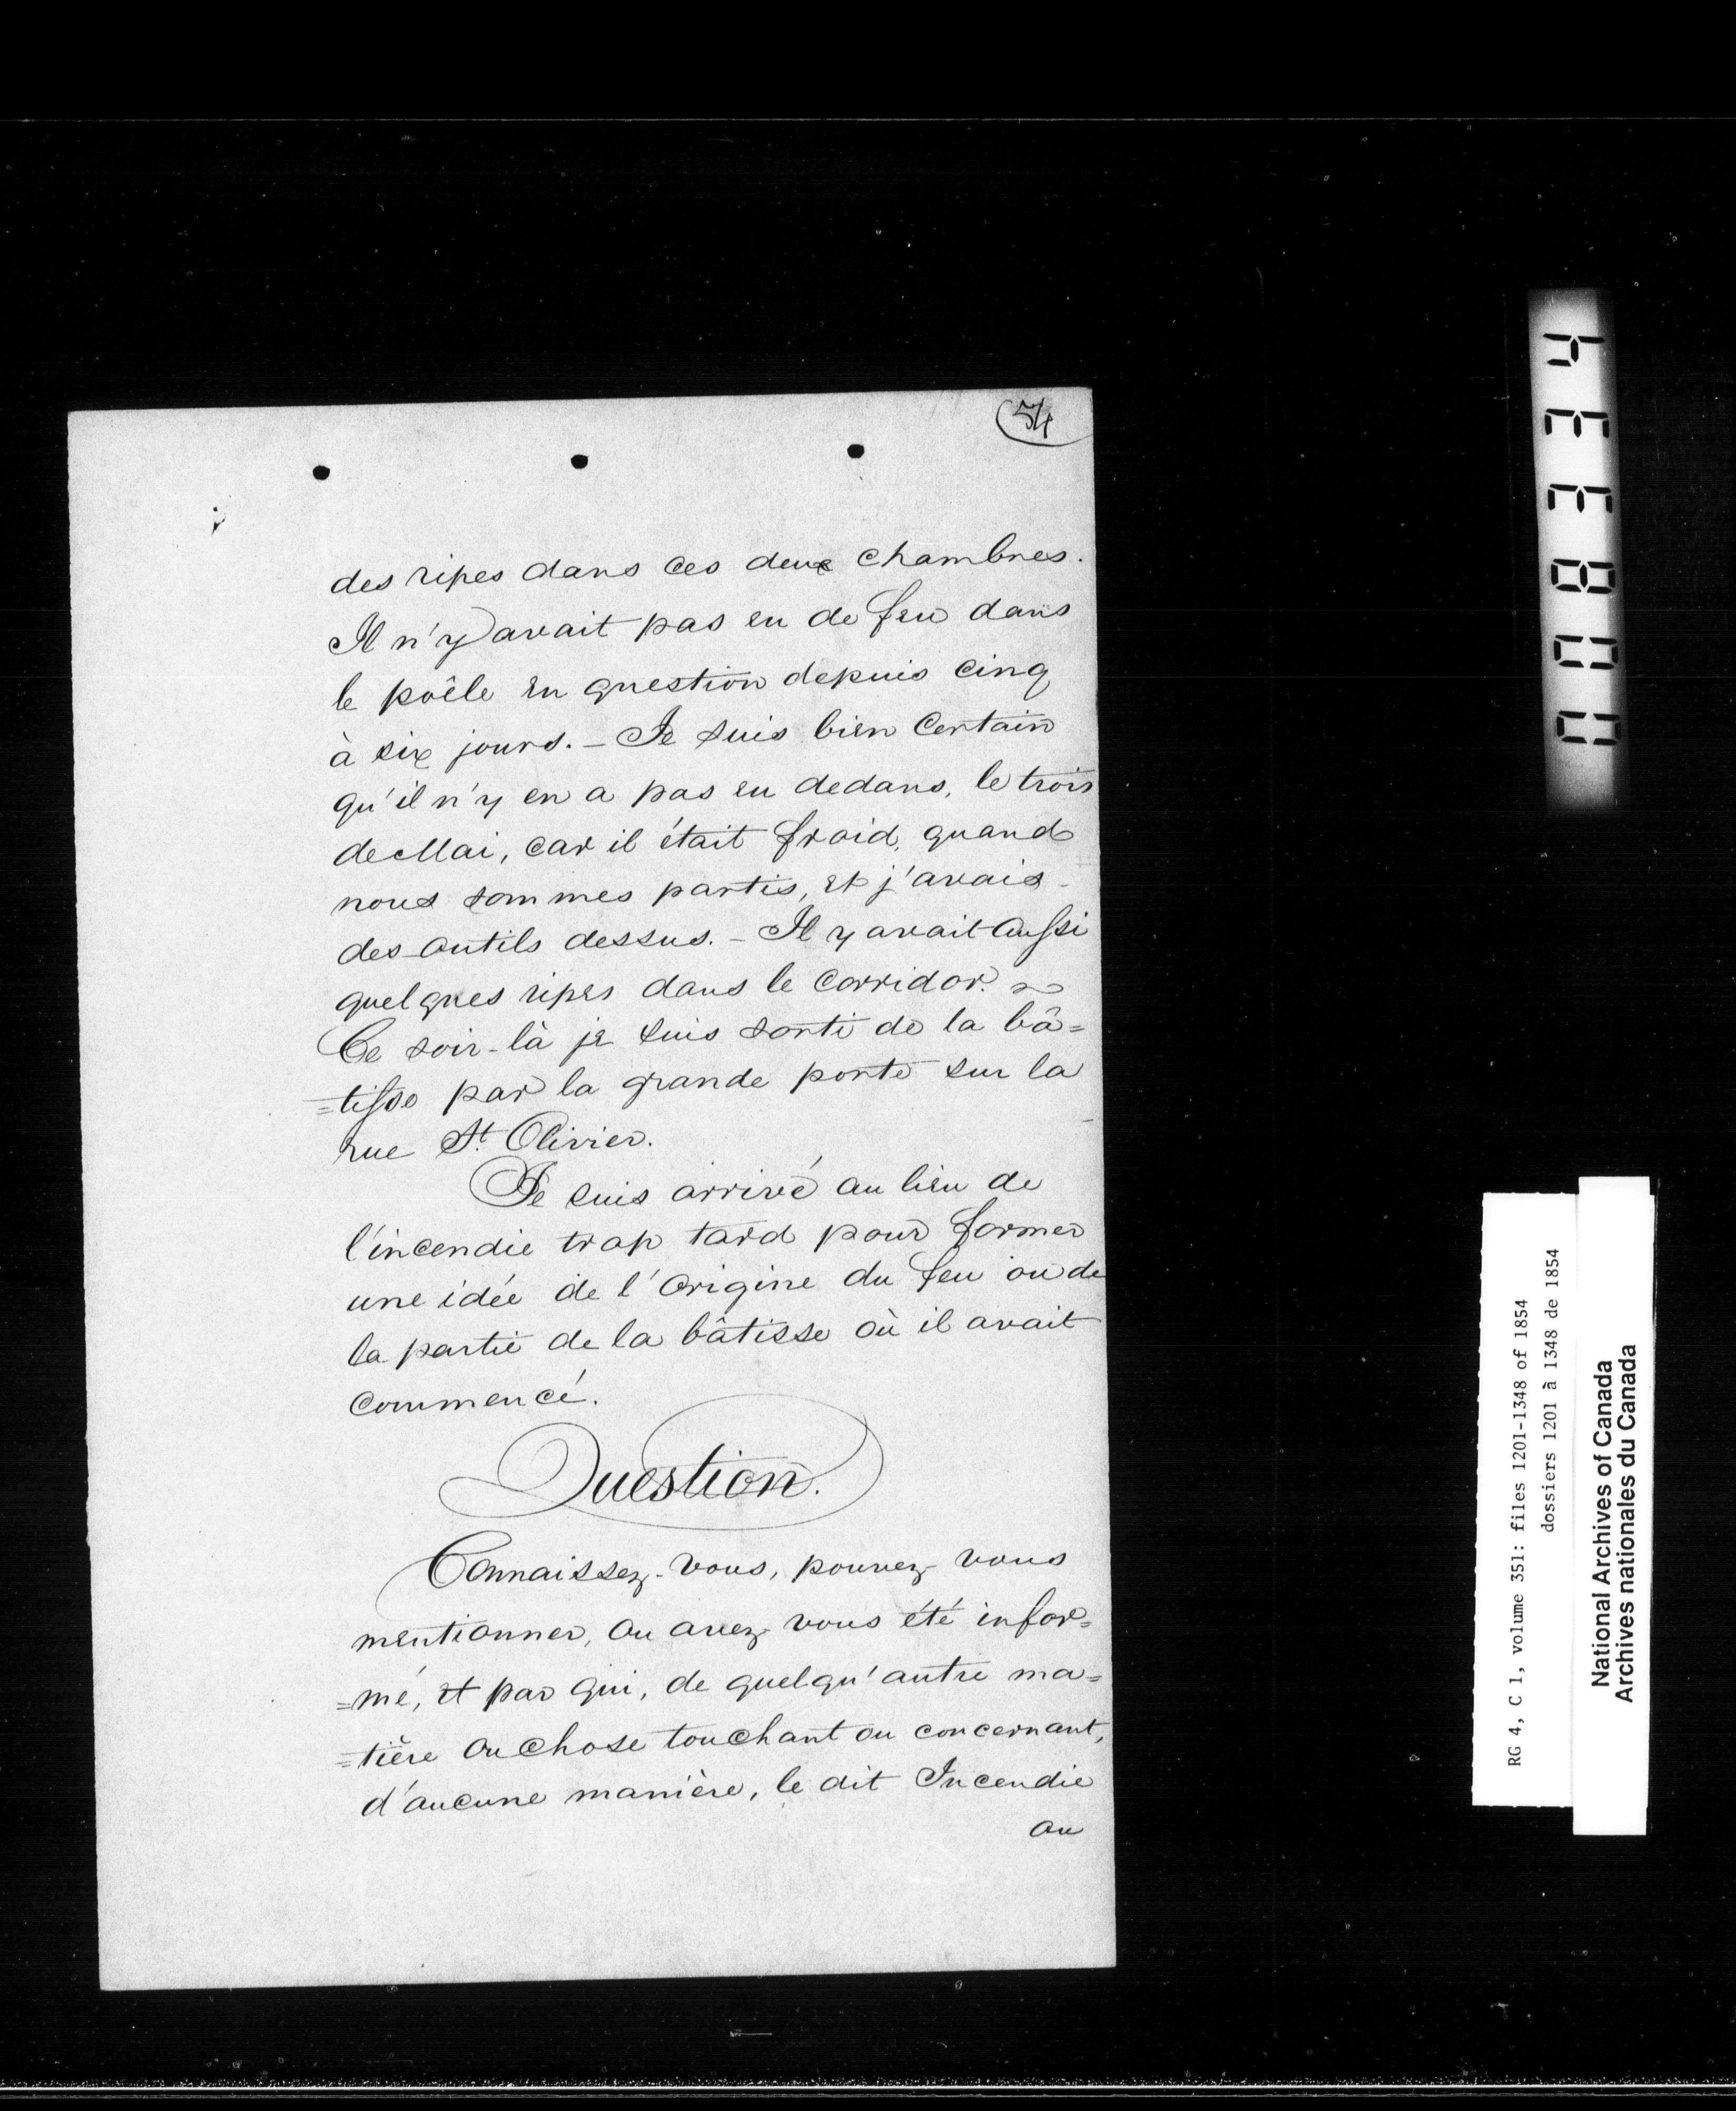 54
des ripes dans ces deux chambres.
Il n'y avait pas eu de feu dans
le poêle en question depuis cinq
à six jours. – Je suis bien certain
qu'il n'y en a pas eu dedans, le trois
de Mai, car il était froid, quand
nous sommes partis, et j'avais
des outils dessus. – Il y avait aussi
quelques ripes dans le corridor.
Ce soir-là je suis sorti de la bâ=
=tisse par la grande porte sur la
rue St. Olivier.
Je suis arrivé au lieu de
l'incendie trop tard pour former
une idée de l'origine du feu ou de
la partie de la bâtisse où il avait
commencé.
Question.
Connaissez-vous, pouvez-vous
mentionner, ou avez-vous été infor=
=mé, et par qui, de quelqu'autre ma=
=tière ou chose touchant ou concernant,
d'aucune manière, le dit Incendie
ou
RG 4, C 1, volume 351: files 1201-1348 of 1854
dossiers 1201 à 1348 de 1854
National Archives of Canada
Archives nationales du Canada